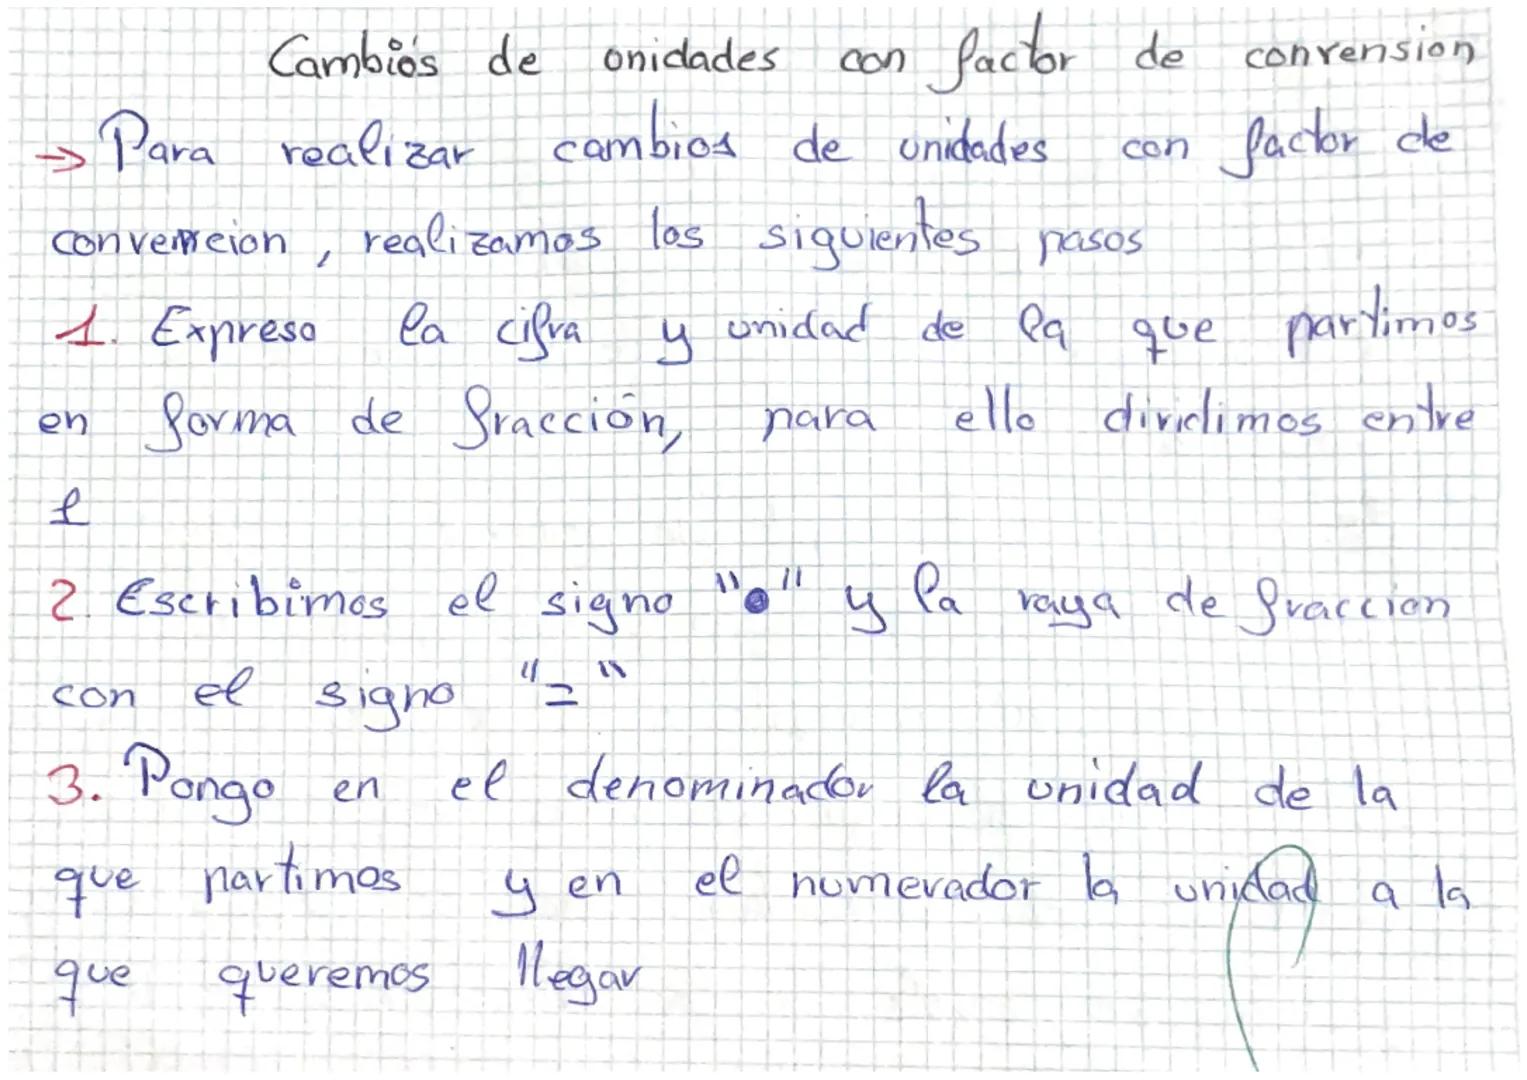 Cambios de unidades con factor de convension
→ Para realizar cambios de unidades con factor de
convension, realizamos los siguientes pasos
1. Expreso la cifra y unidad de la que partimos
en forma de fracción, para ello dividimos entre
1
2. Escribimos el signo "•" y la raya de fraccion
con el signo "="
3. Pongo en el denominador la unidad de la
que partimos y en el numerador la unidad a la
que queremos llegar